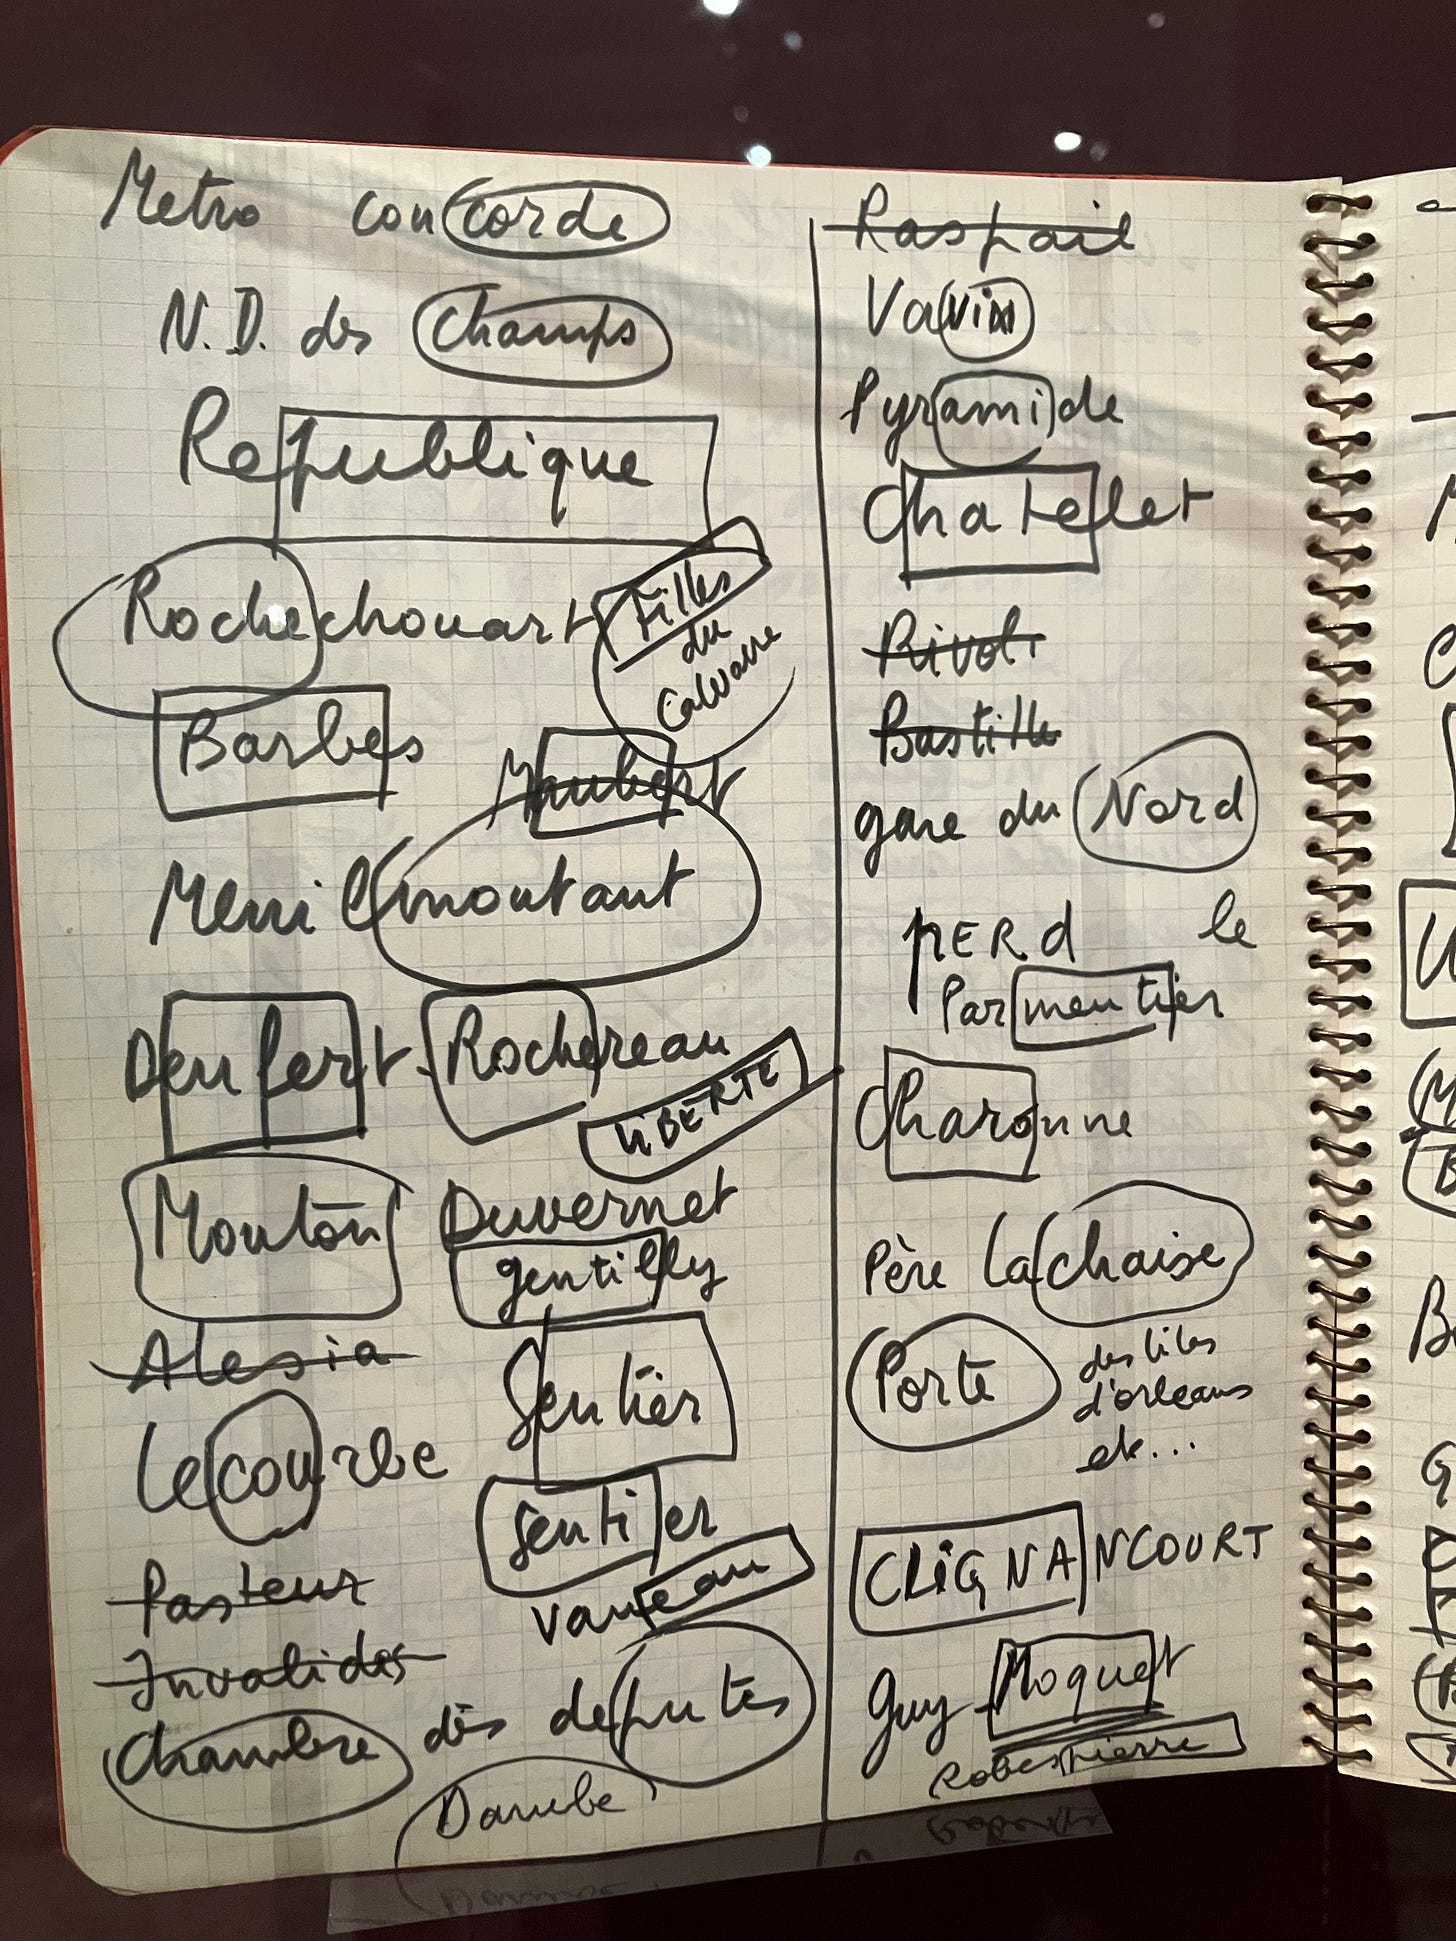 Metro concorde
N.D. des Champs
Republique
Rochechouart
Filles
du
Calvaire
Barbes
Maubert
Menilmontant
Denfert-Rochereau
LiBERTE
Mouton Duvernet
gentilly
Alesia
Sentier
Lecourbe
Sentier
Pasteur
vaneau
Invalides
Chambre des deputes
Danube
Raspail
Vavin
Pyramide
Chatelet
Rivoli
Bastille
gare du Nord
pERd le
Parmentier
Charonne
Père Lachaise
Porte des lilas
d'orleans
etc...
CLiGNANCOURT
Guy Moquet
Robespierre